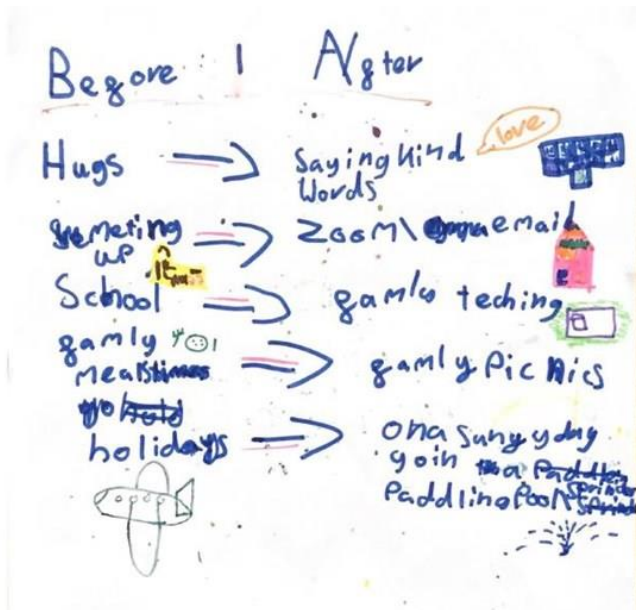 Before After
Hugs saying kind love
words
meting zoom\ email
up
School family teching
family
mealtimes family picnics
holidays on a sunyy day
go in a
Paddling Pool sprinder